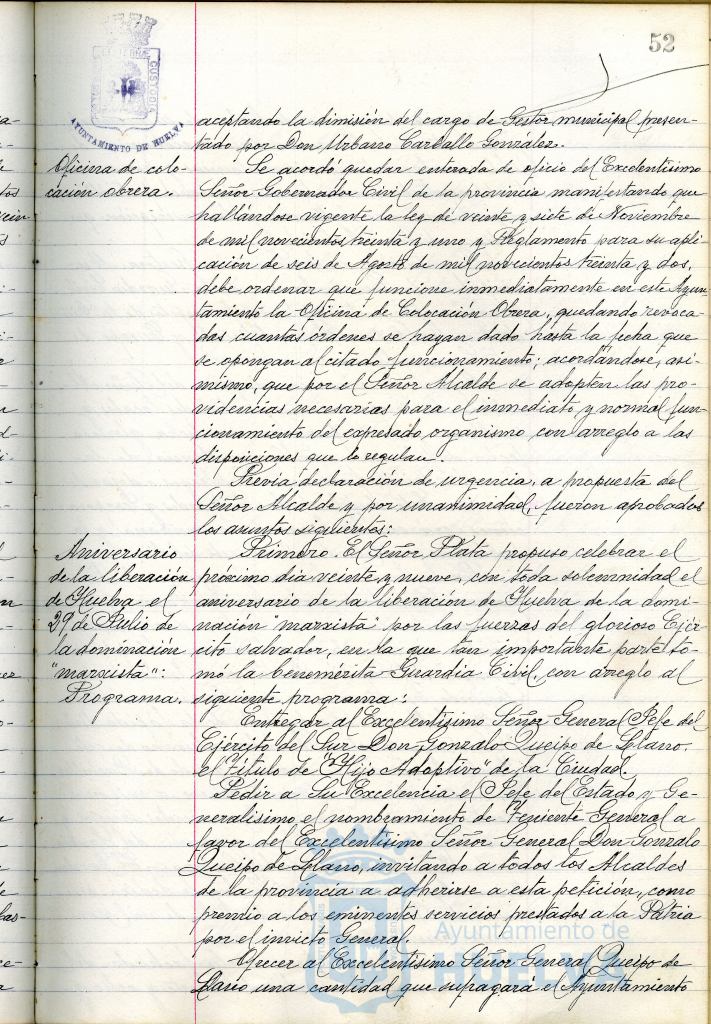 52
AYUNTAMIENTO DE HUELVA
aceptando la dimisión del cargo de Gestor municipal presen-
tado por Don Urbano Carballo González.
Oficina de colo-
cación obrera.
Se acordó quedar enterada de oficio del Excelentísimo
Señor Gobernador Civil de la provincia manifestando que
hallándose vigente la ley de veinte y siete de Noviembre
de mil novecientos treinta y uno y Reglamento para su apli-
cación de seis de Agosto de mil novecientos treinta y dos,
debe ordenar que funcione inmediatamente en este Ayun-
tamiento la Oficina de Colocación Obrera, quedando revoca-
das cuantas órdenes se hayan dado hasta la fecha que
se opongan al citado funcionamiento; acordándose, asi-
mismo, que por el Señor Alcalde se adopten las pro-
videncias necesarias para el inmediato y normal fun-
cionamiento del expresado organismo con arreglo a las
disposiciones que lo regulan.
Previa declaración de urgencia, a propuesta del
Señor Alcalde y por unanimidad, fueron aprobados
los asuntos siguientes:
Aniversario
de la liberación
de Huelva el
29 de Julio de
la dominación
"marxista":
Programa.
Primero. El Señor Plata propuso celebrar el
próximo día veinte y nueve, con toda solemnidad el
aniversario de la liberación de Huelva de la domi-
nación "marxista" por las fuerzas del glorioso Ejér-
cito salvador, en la que tan importante parte to-
mó la benemérita Guardia Civil, con arreglo al
siguiente programa:
Entregar al Excelentísimo Señor General Jefe del
Ejército del Sur Don Gonzalo Queipo de Llano,
el título de "Hijo Adoptivo" de la Ciudad.
Pedir a Su Excelencia el Jefe del Estado y Ge-
neralísimo el nombramiento de Teniente General a
favor del Excelentísimo Señor General Don Gonzalo
Queipo de Llano, invitando a todos los Alcaldes
de la provincia a adherirse a esta petición, como
premio a los eminentes servicios prestados a la Patria
por el invicto General.
Ofrecer al Excelentísimo Señor General Queipo de
Llano una cantidad que supagara el Ayuntamiento
Ayuntamiento de
HUELVA